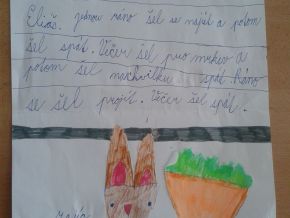 Eliáš. jednou ráno šel se najíst a potom
šel spát. Večer šel pro mrkev a
potom šel nachvilku spát. Ráno
se šel projít. Večer šel spát.